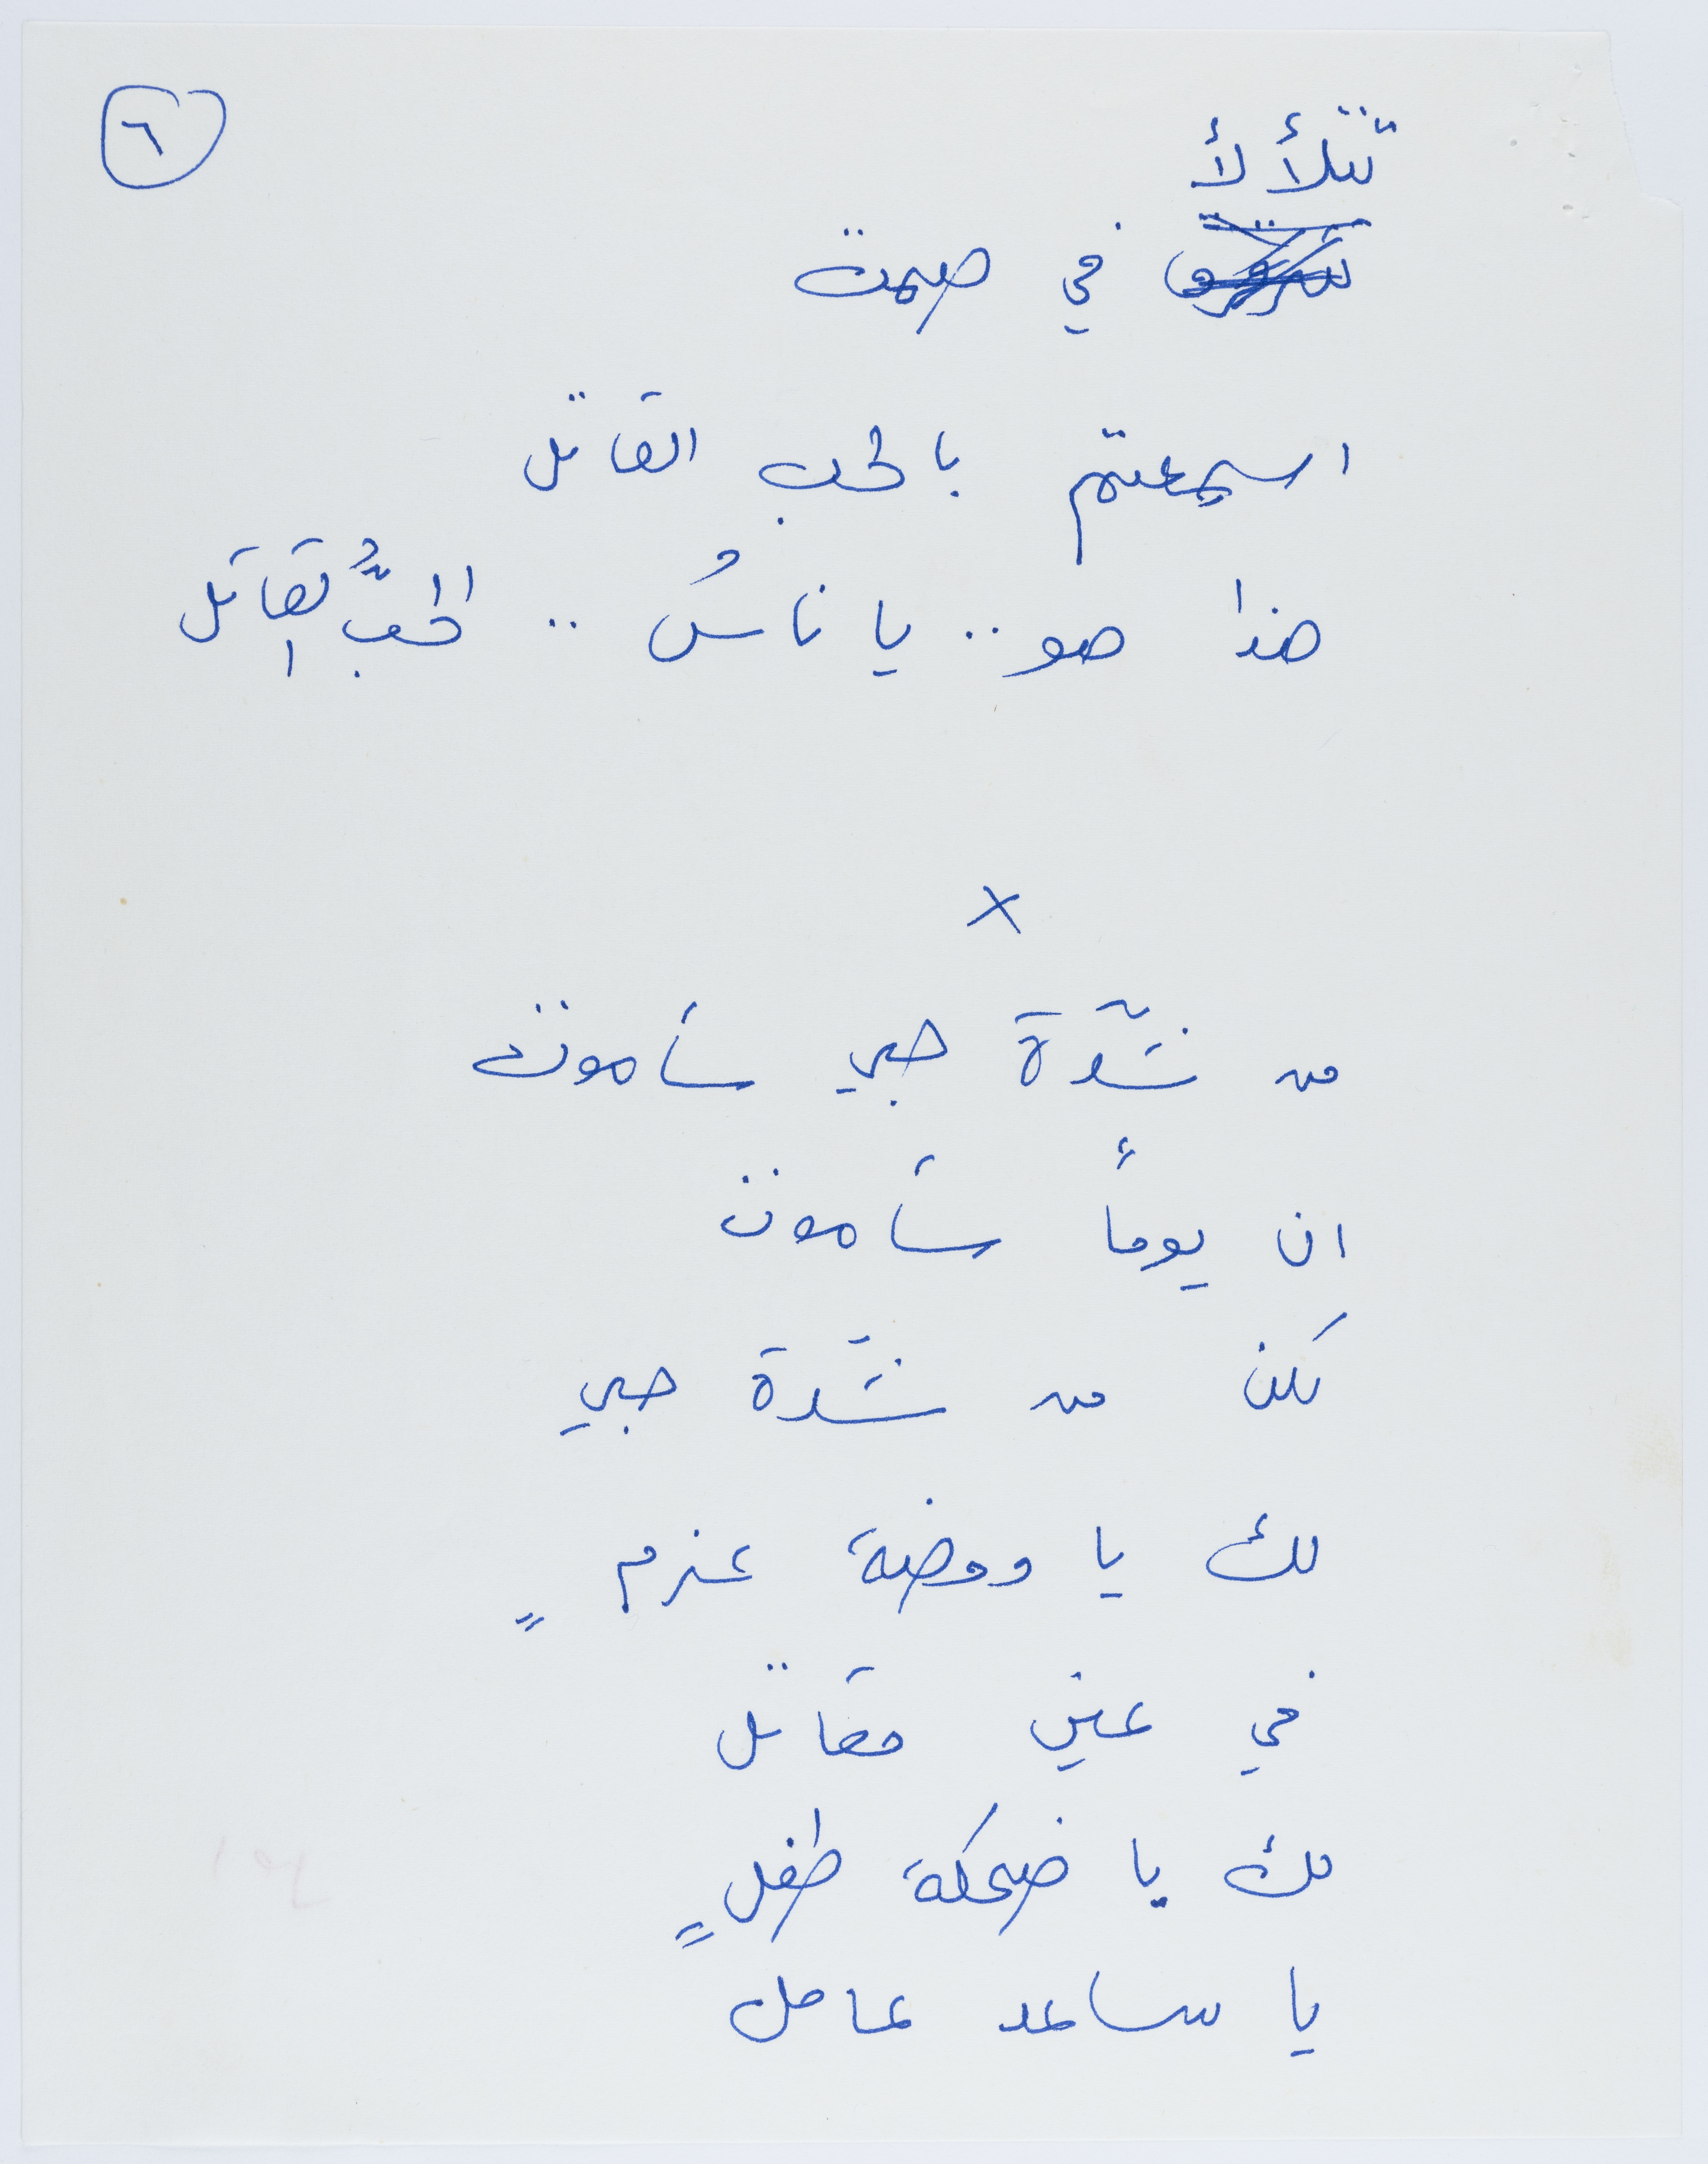 ٦
تتلألأ
في صمت
اسمعتم بالحب القاتل
هذا هو .. يا ناسُ .. الحبُّ القاتل
×
من شدّة حبي سأموت
ان يوماً سأموت
لكن من شدّة حبي
لك يا ومضة عزمٍ
في عين مقاتل
لك يا ضحكة طفلٍ
يا ساعد عامل